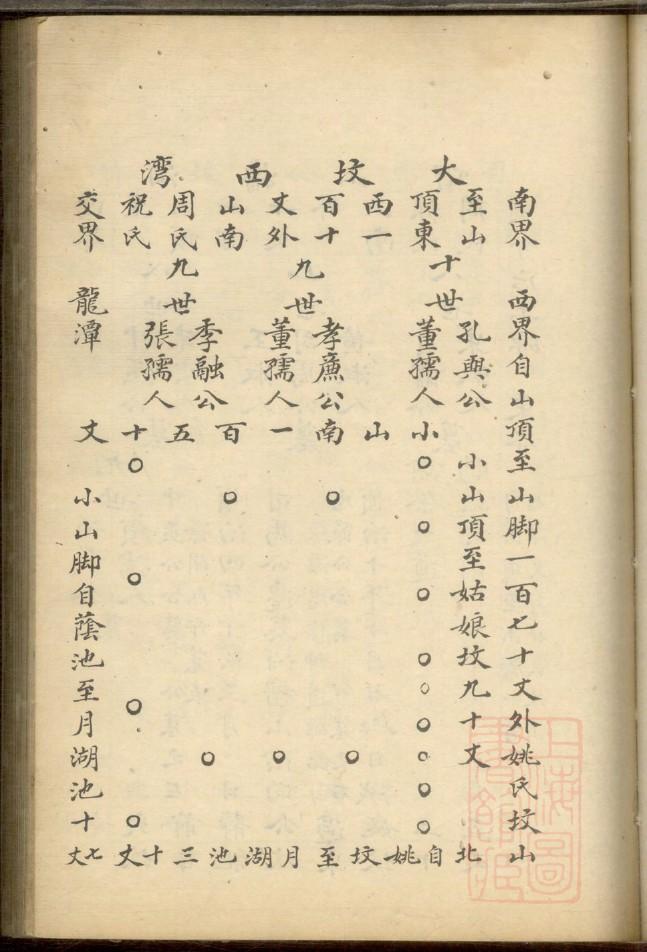 大坟西湾
南界至山頂東西一百十丈外山南周氏祝氏交界
西界自山頂至山脚一百七十丈外姚氏坟山
十世
孔與公
董孺人
九世
孝廉公
董孺人
九世
季融公
張孺人
龍潭
小山頂至姑娘坟九十丈
小山南一百五十丈
北自姚坟至月湖池三十丈
小山脚自蔭池至月湖池十七丈
上海圖書館藏